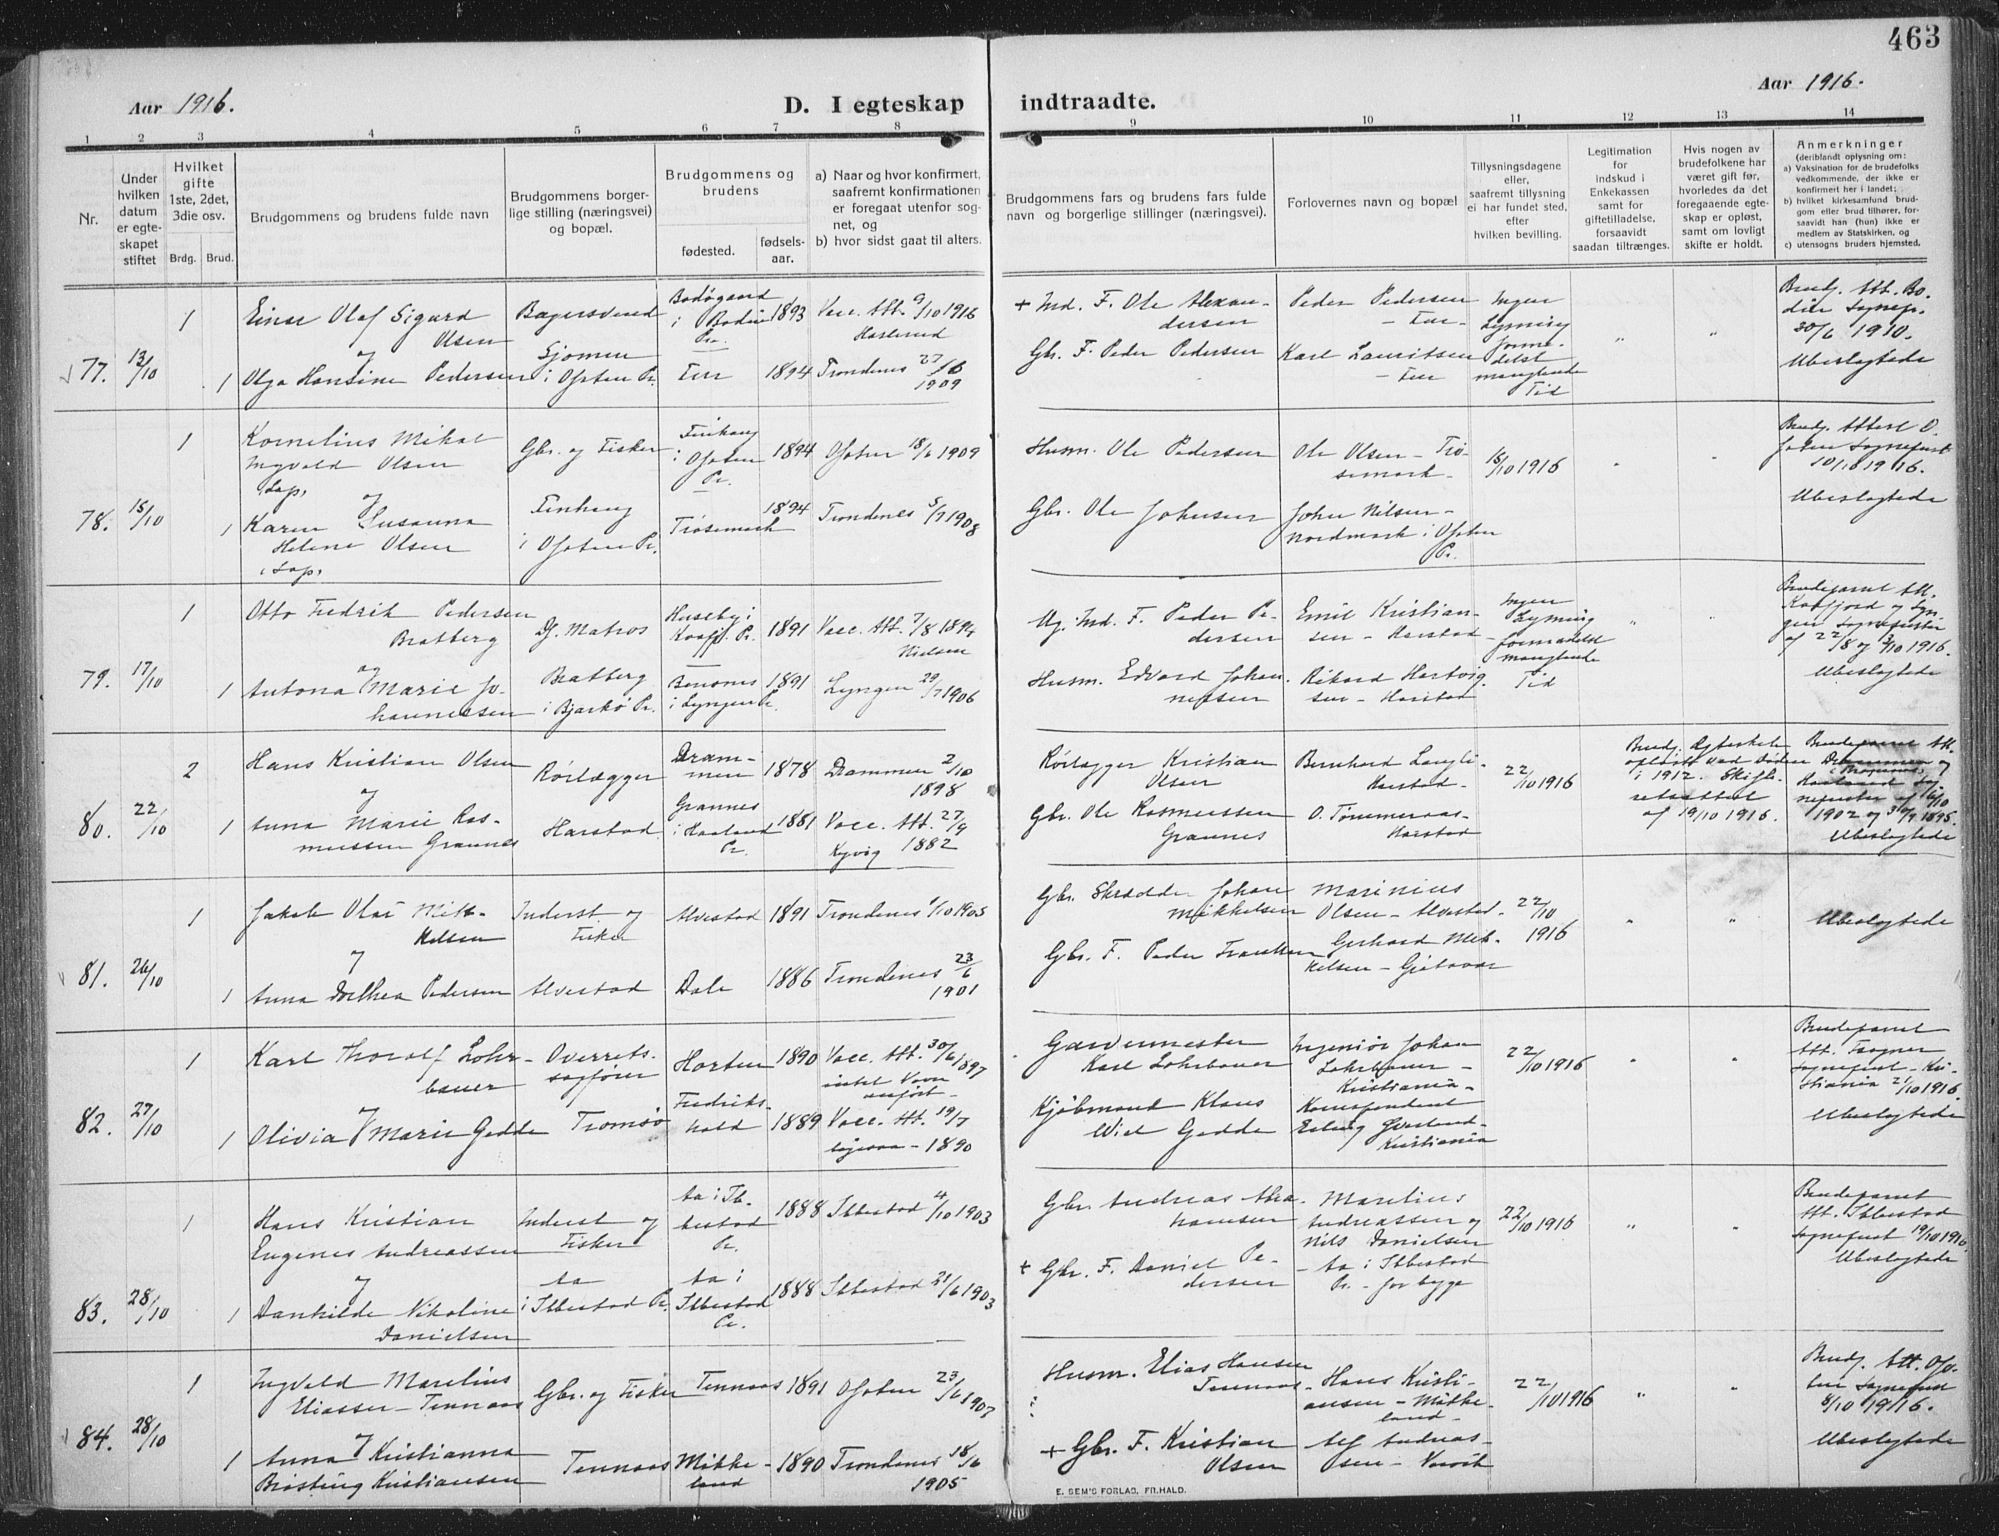 463
Aar 1916.
D. I egteskap indtraadte.
Aar 1916.
1 2 3 4 5 6 7 8 9 10 11 12 13 14
Nr.
Under hvilken datum er egteskapet stiftet
Hvilket gifte 1ste, 2det, 3die osv.
Brdg. Brud.
Brudgommens og brudens fulde navn
Brudgommens borgerlige stilling (næringsvei) og bopæl.
Brudgommens og brudens
fødested.
fødselsaar.
a) Naar og hvor konfirmert, saafremt konfirmationen er foregaat utenfor sognet, og
b) hvor sidst gaat til alters.
Brudgommens fars og brudens fars fulde navn og borgerlige stillinger (næringsvei).
Forlovernes navn og bopæl
Tillysningsdagene eller, saafremt tillysning ei har fundet sted, efter hvilken bevilling.
Legitimation for indskud i Enkekassen samt for giftetilladelse, forsaavidt saadan tiltrænges.
Hvis nogen av brudefolkene har været gift før, hvorledes da det foregaaende egteskap er opløst, samt om lovligt skifte er holdt.
Anmerkninger
(deriblandt oplysning om:
a) Vaksination for de brudefolks vedkommende, der ikke er konfirmert her i landet;
b) hvilket kirkesamfund brudgom eller brud tilhører, forsaavidt han (hun) ikke er medlem av Statskirken, og
c) utensogns bruders hjemsted.
77. 13/10
1 Einar Olaf Sigurd Olsen
og
1 Olga Hansine Pedersen
Sjomen i Ofoten Pr.
Bodøgaard i Bodin Pr. 1893
1894
Vacc. Att. 9/10 1916
Trondenes 27/6 1909
+ Ind. F. Ole Alexandersen
Gbr. F. Peder Pedersen
Peder Pedersen
Karl Lauritsen
Ingen Lysning formedelst manglende Tid
" "
Brudg. Att. Bodin Sognepr. 30/6 1910.
Ubeslægtede
78. 15/10
1 Kornelius Mikal Ingvald Olsen
Lap,
og
1 Karen Susanna Helene Olsen
Lap,
Gbr. og Fisker
i Ofoten Pr.
i Ofoten Pr. 1894
Trøsemark 1894
Ofoten 18/6 1909
Trondenes 5/7 1908
Husm. Ole Pedersen
Gbr. Ole Johnsen
Ole Olsen - Trøsemark
John Nilsen - Nordmark i Ofoten Pr.
15/10 1916
Brudg. Attest Ofoten Sogneprest 10/10 1916.
Ubeslægtede
79. 17/10
1 Otto Fredrik Pedersen Bratberg
og
1 Antona Marie Johannessen
Df. Matros
Bratberg i Bjarkø Pr.
Huseby i Kaafj. Pr. 1891
i Lyngen Pr. 1891
Vacc. Att. 7/8 1894 Nielsen
Lyngen 29/7 1906
Ug. Ind. F. Peder Pedersen
Husm. Edvard Johannessen
Emil Kristiansen - Harstad
Rikard Hartvigsen - Harstad
Ingen Lysning formedelst manglende Tid
" "
Brudeparret Att. Kaafjord og Lyngen Sogneprester af 22/8 og 2/10 1916.
Ubeslægtede
80. 22/10
2 Hans Kristian Olsen
og
1 Anna Marie Rasmussen Grannes
Rørlægger
Harstad
Drammen 1878
Grannes i Haaland Pr. 1881
Drammen 2/10 1898
Vacc. Att. 27/9 1882
Rørlægger Kristian Olsen
Gbr. Ole Rasmussen Grannes
Bernhard Langli Harstad.
O. Tømmeraas - Harstad
22/10 1916
Brudg. Egteskab opløst ved Døden i 1912. Skifteretsattest af 19/10 1916.
Brudeparret Att. Drammen og
Ubeslægtede
81. 26/10
1 Jakob Olai Mikkelsen
og
1 Anna Dorthea Pedersen
Inderst og Fisker
Alvestad
Alvestad 1891
Dale 1886
Trondenes 1/10 1905
Trondenes 23/6 1901
Gbr. Skrædder Johan Mikkelsen
Gbr. F. Peder Frantsen
Marinius Olsen - Alvestad.
Gerhard Mikkelsen -
22/10 1916
" "
Ubeslægtede
82. 27/10
1 Karl Thorolf Lohrbauer
og
1 Olivia Marie Gedde
Overretssagfører
Tromsø
Horten 1890
Fredrikshald 1889
Vacc. Att. 30/6 1897 intet Navn anført
Vacc. Att. 19/7 1890
Garvermester Karl Lohrbauer
Kjøbmand Klaus Wiel Gedde
Ingeniør Johan Lohrbauer - Kristiania -
Korrespondent Erling - Kristiania
22/10 1916
" "
Brudeparret Att. Tromsø Sogneprest - Kristiania 21/10 1916.
Ubeslægtede
83. 28/10
1 Hans Kristian Eugenes Andreassen
og
1 Dankilde Nikoline Danielsen
Inderst og Fisker
Aa i Ibbestad Pr.
Aa i Ibbestad Pr. 1888
Aa i Ibbestad Pr. 1888
Ibbestad 4/10 1903
Ibbestad 21/6 1903
Gbr. Andreas Abrahamsen
+ Gbr. F. Daniel Pedersen
Marelius Andreassen og Nils Danielsen - Aa i Ibbestad Pr. - for begge
22/10 1916
" "
Brudeparret Att. Ibbestad Sogneprest 19/10 1916.
Ubeslægtede
84. 28/10
1 Ingvald Marelius Eliassen - Tennaas
og
1 Anna Kristianna Kristiansen
Gbr. og Fisker
Tennaas
Tennaas 1891
Mikkeland 1890
Ofoten 23/6 1907
Trondenes 18/6 1905
Husm. Elias Hansen Tennaas.
+ Gbr. F. Kristian Olsen
Hans Kristiansen - Mikkeland -
Alf Andreassen -
22/10 1916
" "
Brudg. Att. Ofoten Sogneprest 8/10 1916.
Ubeslægtede
E. SEM'S FORLAG, FR.HALD.